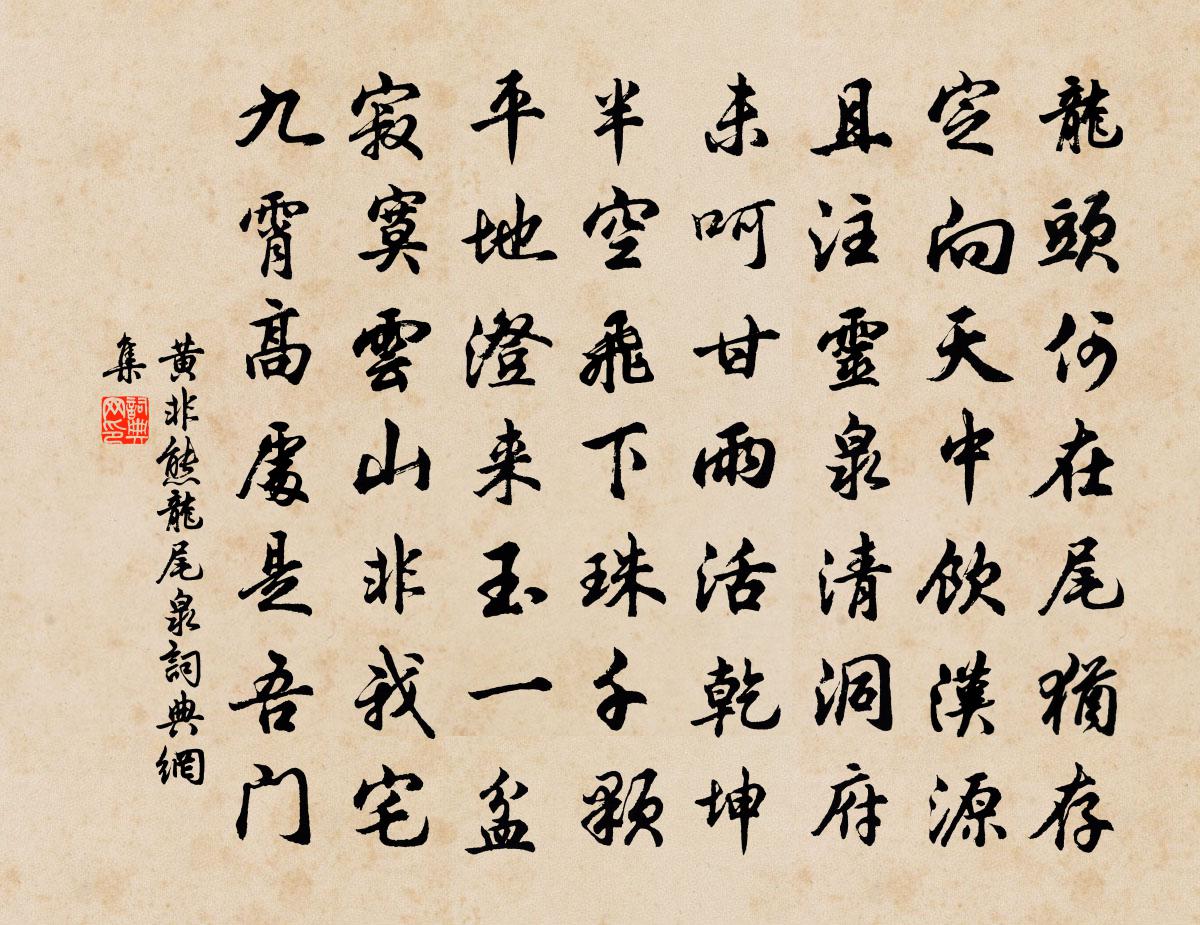 龍頭何在尾猶存
定向天中飲漢源
且注靈泉清洞府
未呵甘雨活乾坤
半空飛下珠千顆
平地澄来玉一盆
寂寞雲山非我宅
九霄高處是吾門
黄非熊龍尾泉詞典網
集
詞典
网印